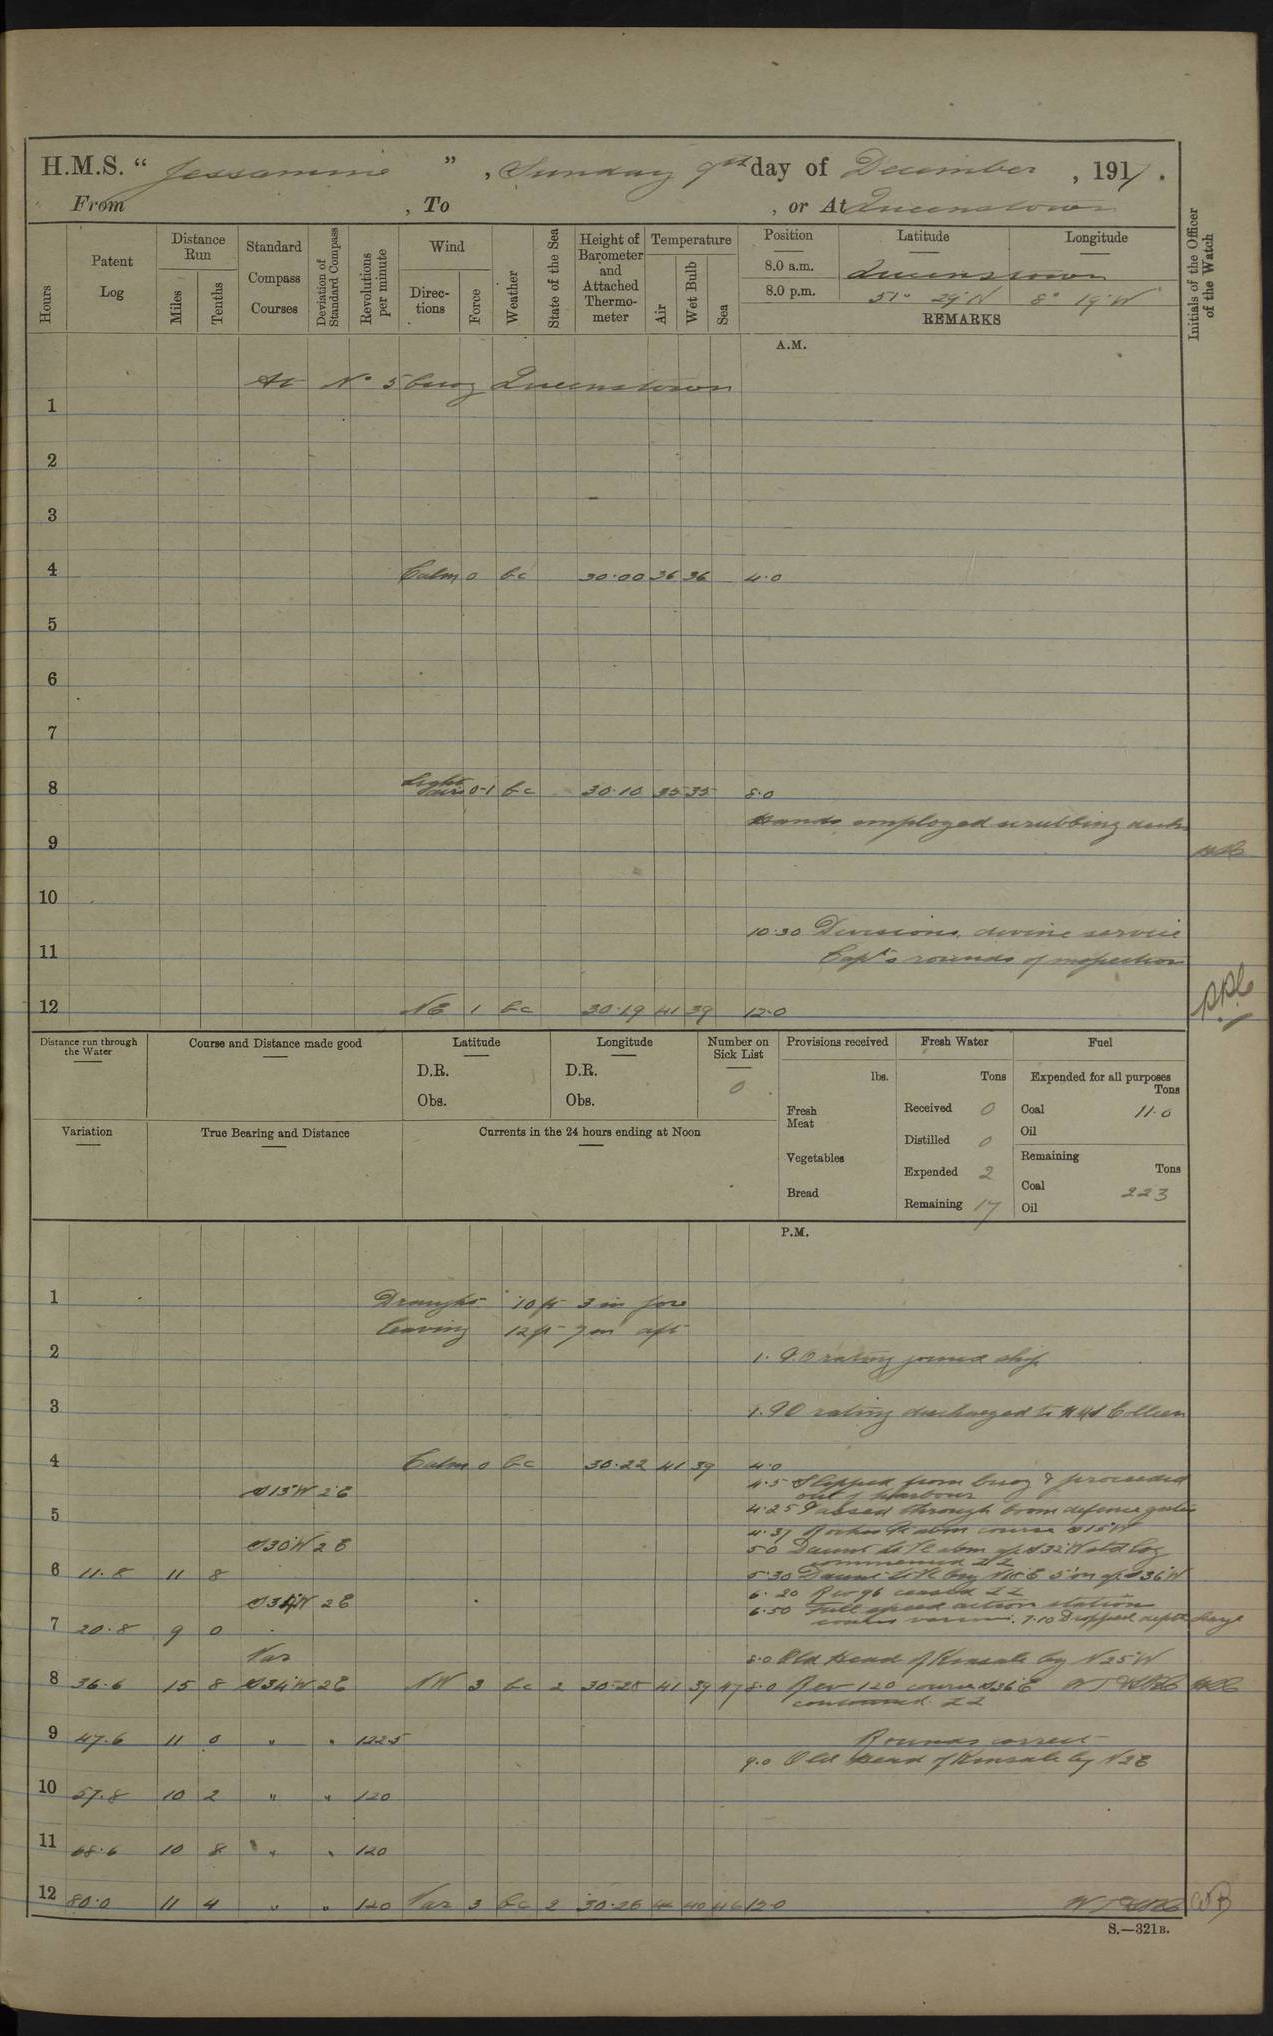 H.M.S. " Jessamine ", Sunday 9th day of December, 1917.
From , To , or At Queenstown
Hours
Patent Log
Distance Run
Miles
Tenths
Standard Compass Courses
Deviation of Standard Compass
Revolutions per minute
Wind
Directions
Force
Weather
State of the Sea
Height of Barometer and Attached Thermometer
Temperature
Air
Wet Bulb
Sea
Position
Latitude
Longitude
8.0 a.m. Queenstown
8.0 p.m. 51° 29' N 8° 19' W
REMARKS
Initials of the Officer of the Watch
A.M.
At No 5 buoy Queenstown
1
2
3
4 Calm 0 bc 30.00 36 36 4.0
5
6
7
8 Light airs 0-1 bc 30.10 35 35 8.0
Hands employed scrubbing decks
9
10
10.30 Divisions, divine service
11 Capt's rounds of inspection
12 NE 1 bc 30.19 41 39 12.0
Distance run through the Water
Course and Distance made good
Latitude
D.R.
Obs.
Longitude
D.R.
Obs.
Number on Sick List
0
Provisions received
lbs.
Fresh Meat
Vegetables
Bread
Fresh Water
Tons
Received 0
Distilled 0
Expended 2
Remaining 17
Fuel
Expended for all purposes
Tons
Coal 11.0
Oil
Remaining
Tons
Coal 223
Oil
Variation
True Bearing and Distance
Currents in the 24 hours ending at Noon
P.M.
1 Draught 10 ft 3 in fore
leaving 12 ft 7 in aft
2 1. P.O rating joined ship
3 1. PO rating discharged to HMS Colleen
4 Calm 0 bc 30.22 41 39 4.0
S15W 2E 4.5 Slipped from buoy & proceeded
out of harbour
5 4.25 Passed through boom defence gates
4.37 Roches Pt abm course S15W
S30W 2E 5.0 Daunt Lt V abm a/c S32W std log
commenced ZZ
6 11.8 11 8 5.30 Daunt Lt V brg N15E 5' on a/c S36W
6.20 Rev 96 ceased ZZ
S34W 2E 6.50 Full speed action stations
7 20.8 9 0 7.10 Dropped depth charge
Var 8.0 Old Head of Kinsale brg N25W
8 36.6 15 8 S34W 2E NW 3 bc 2 30.25 41 39 47 8.0 Rev 120 course S36E
commenced ZZ
9 47.6 11 0 " " 122.5 Rounds correct
9.0 Old Head of Kinsale brg N2E
10 57.8 10 2 " " 120
11 68.6 10 8 " " 120
12 80.0 11 4 " " 120 Var 3 bc 2 30.26 40 46 12.0 WB
S.—321B.